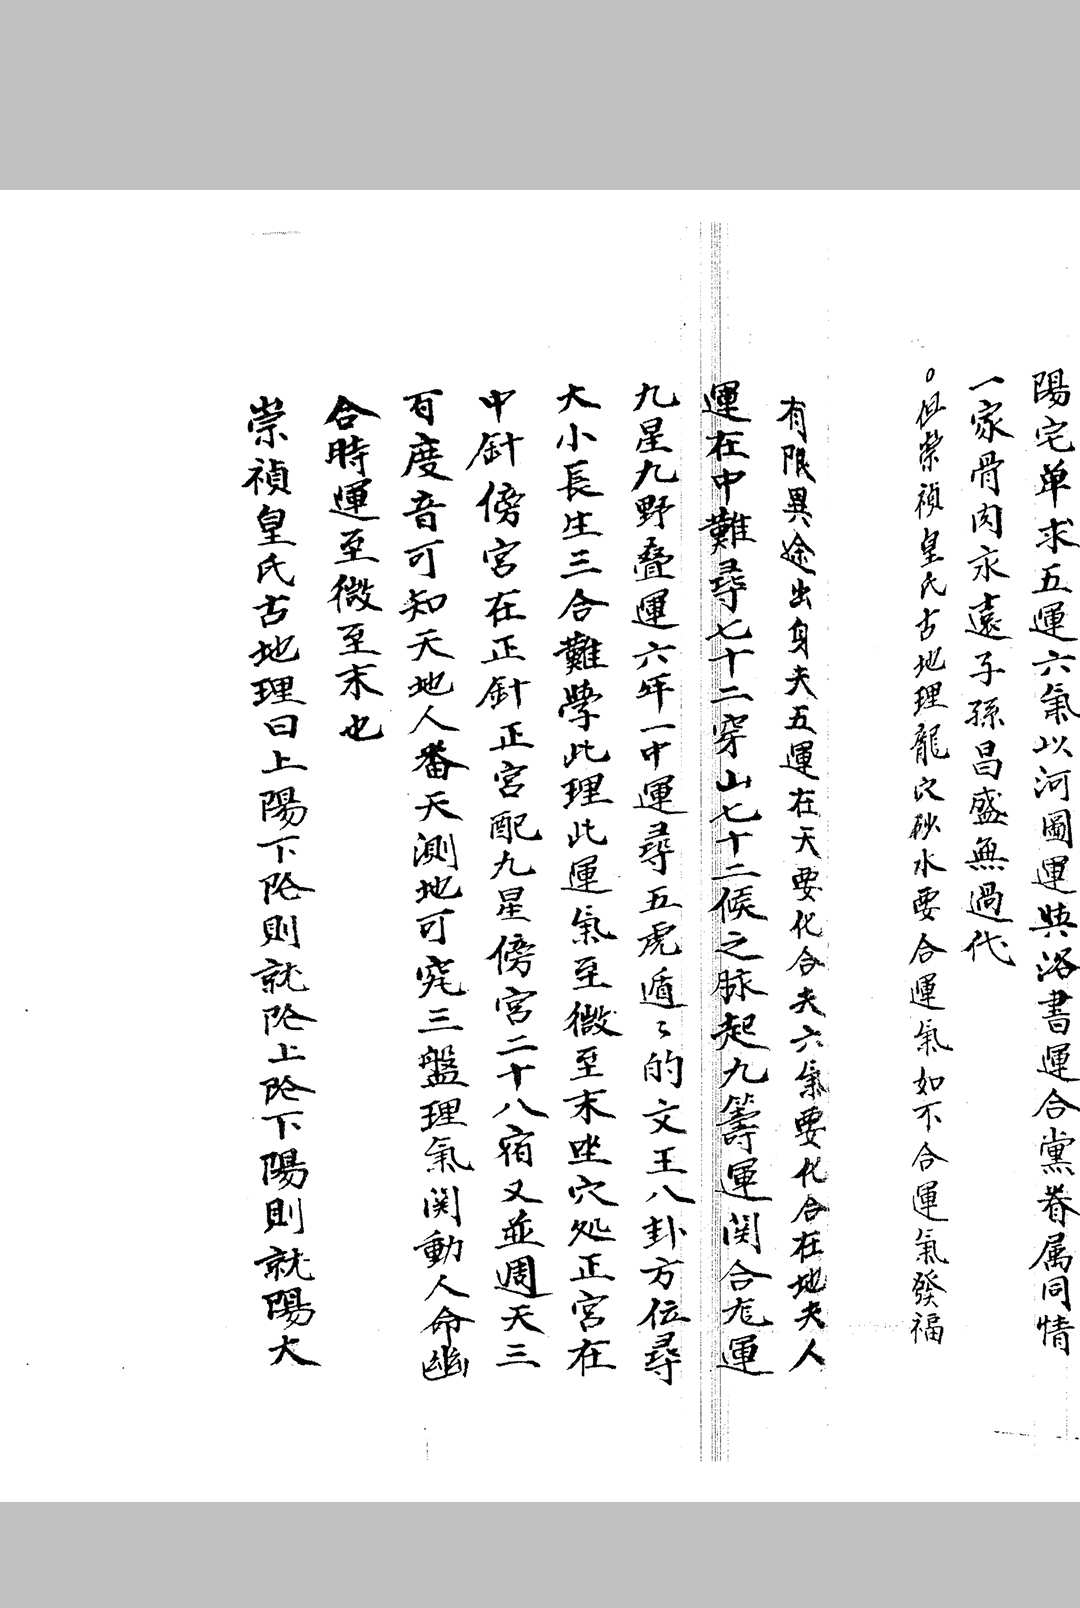 陽宅单求五運六氣以河圖運與洛書運合黨眷属同情
一家骨肉永遠子孫昌盛無過代
○但崇禎皇氏古地理龍穴砂水要合運氣如不合運氣發福
有限異途出身夫五運在天要化合夫六氣要化合在地夫人
運在中難尋七十二穿山七十二候之脉起九籌運関合尨運
九星九野叠運六年一中運尋五虎遁々的文王八卦方位尋
大小長生三合難學此理此運氣至微至末坐穴処正宮在
中針傍宮在正針正宮配九星傍宮二十八宿又並週天三
百度音可知天地人番天測地可究三盤理氣関動人命幽
合時運至微至末也
崇禎皇氏古地理曰上陽下阾則就阾上阾下陽則就陽大